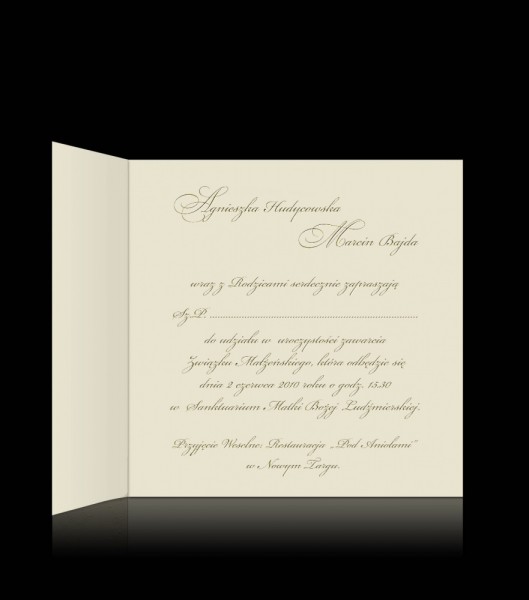 Agnieszka Hudycowska
Marcin Bajda
wraz z Rodzicami serdecznie zapraszają
Sz.P. ..........................................................................
do udziału w uroczystości zawarcia
Związku Małżeńskiego, która odbędzie się
dnia 2 czerwca 2010 roku o godz. 15.30
w Sanktuarium Matki Bożej Ludźmierskiej.
Przyjęcie Weselne: Restauracja „Pod Aniołami”
w Nowym Targu.